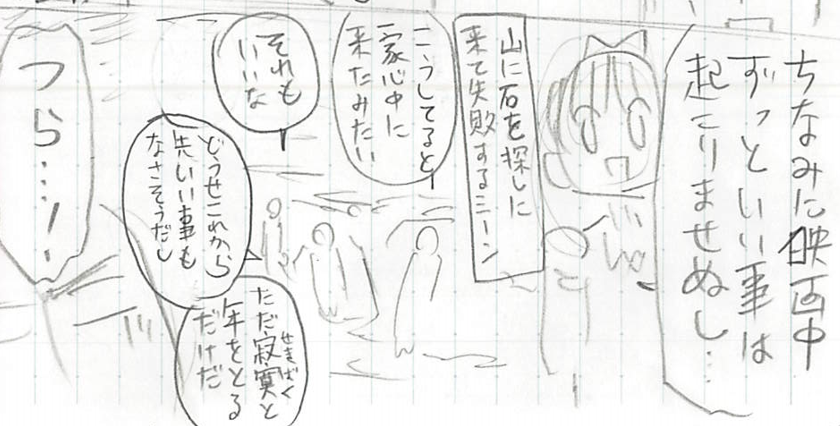 ちなみに映画中
ずっといい事は
起こりませぬし…
山に石を探しに
来て失敗するシーン
こうしてると
一家心中に
来たみたい
それも
いいな
どうせこれから
先いい事も
なさそうだし
ただ寂寞と
せきばく
年をとる
だけだ
つら…！